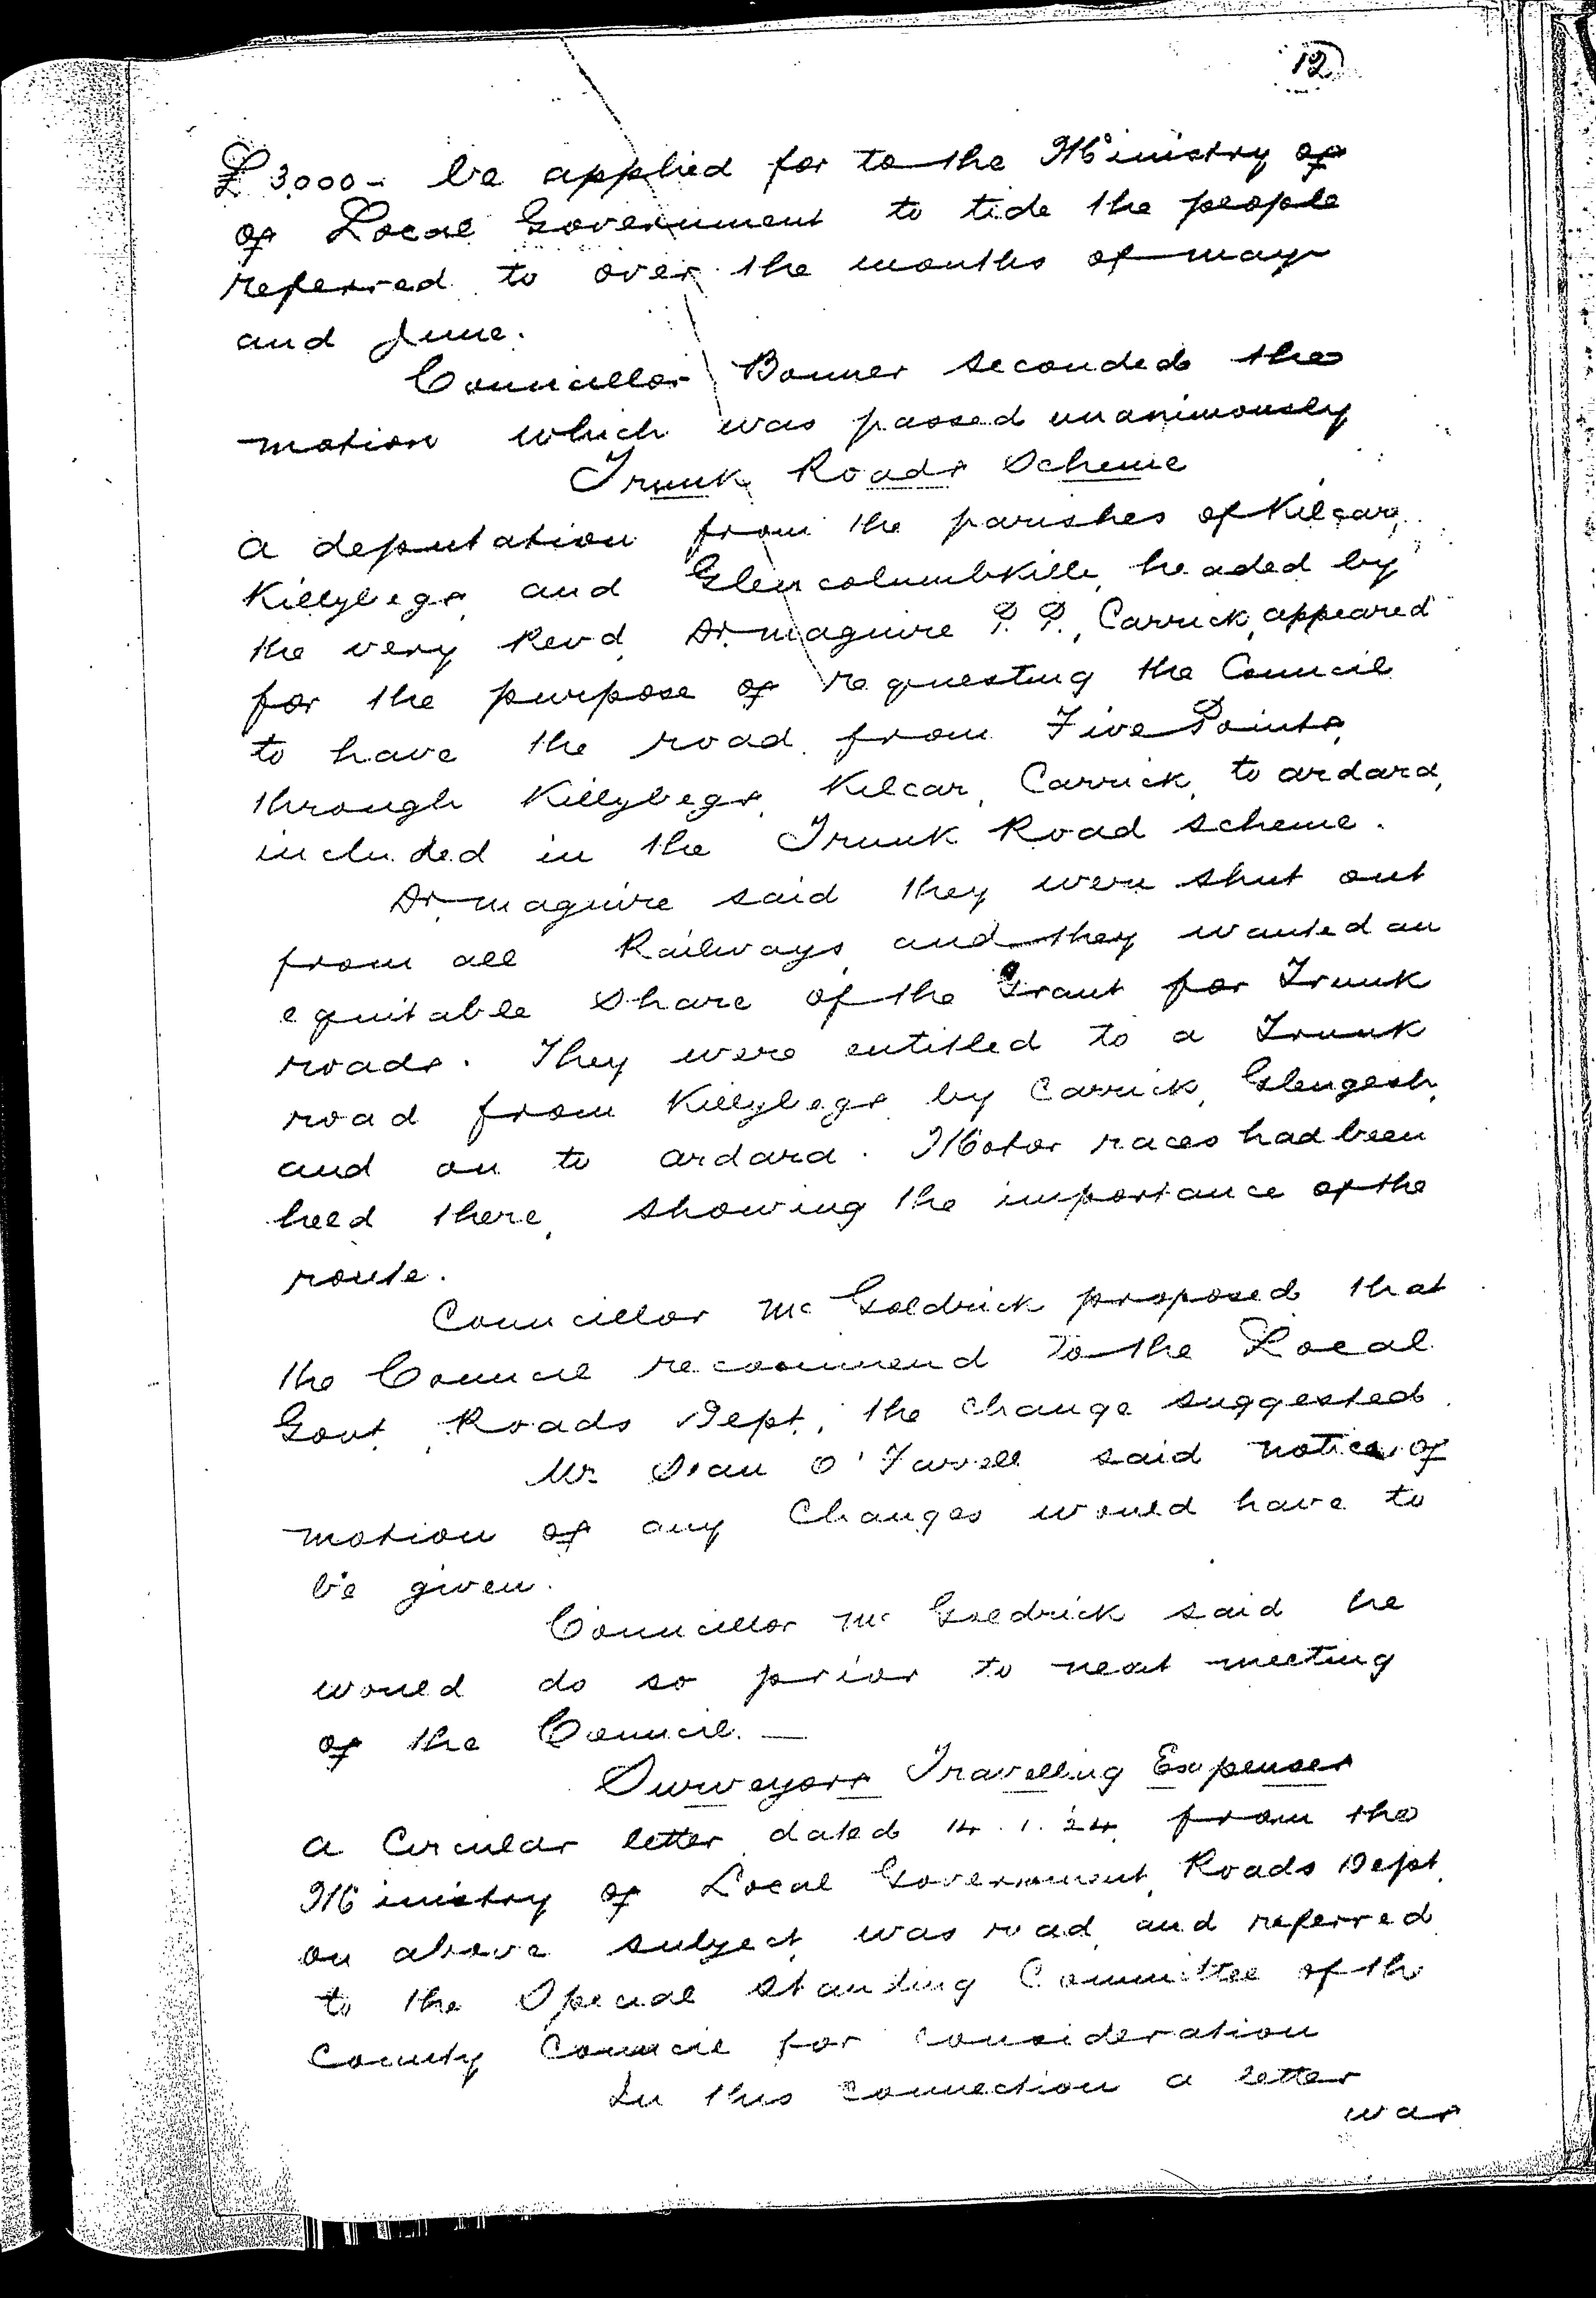 12
£3,000 - be applied for to the Ministry of
of Local Government to tide the people
referred to over the months of may
and June.
Councillor Bonner seconded the
motion which was passed unanimously
Trunk Roads Scheme
a deputation from the parishes of Kilcar,
Killybegs, and Glencolumbkille, headed by
the very Revd. Dr. maguire P. P., Carrick, appeared
for the purpose of requesting the Council
to have the road from Five Points,
through Killybegs, Kilcar, Carrick, to ardara,
included in the Trunk Road scheme.
Dr. maguire said they were shut out
from all Railways, and they wanted an
equitable share of the Grant for Trunk
roads. They were entitled to a Trunk
road from Killybegs by Carrick, Glengesh,
and on to ardara. Motor races had been
held there, showing the importance of the
route.
Councillor Mc Goldrick proposed that
the Council recommend to the Local
Govt. Roads Dept., the change suggested.
Mr. Sean O'Farrell said notice of
motion of any Changes would have to
be given.
Councillor Mc Goldrick said he
would do so prior to next meeting
of the Council. —
Surveyors Travelling Expenses
a Circular letter dated 14.1.24, from the
Ministry of Local Government, Roads Dept.
on above subject, was read, and referred
to the Special Standing Committee of the
County Council for consideration
In this connection a letter
was